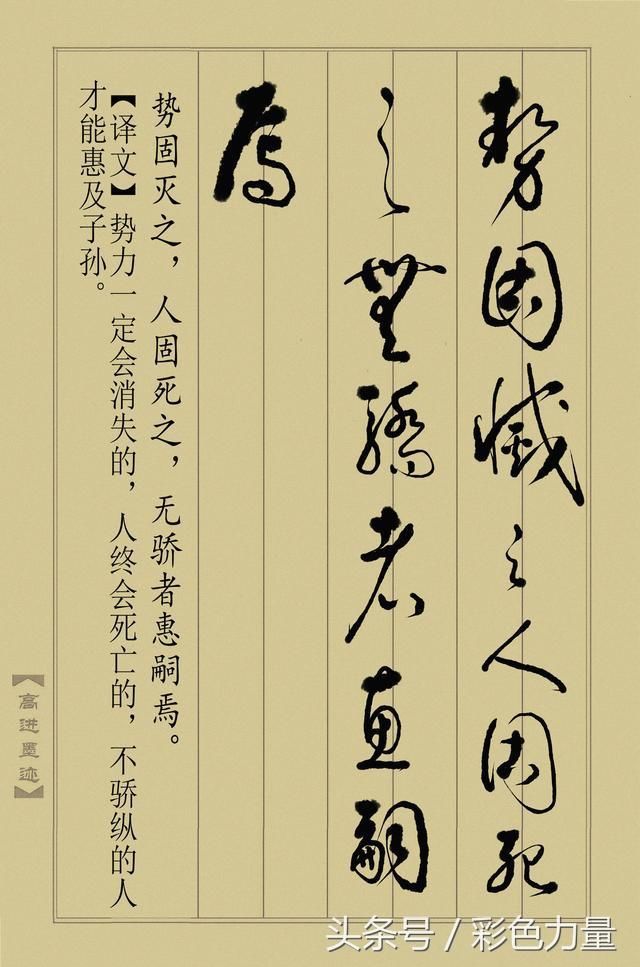 势固灭之人固死
之無骄者惠嗣
焉
势固灭之，人固死之，无骄者惠嗣焉。
【译文】势力一定会消失的，人终会死亡的，不骄纵的人
才能惠及子孙。
【高进墨迹】
头条号 / 彩色力量